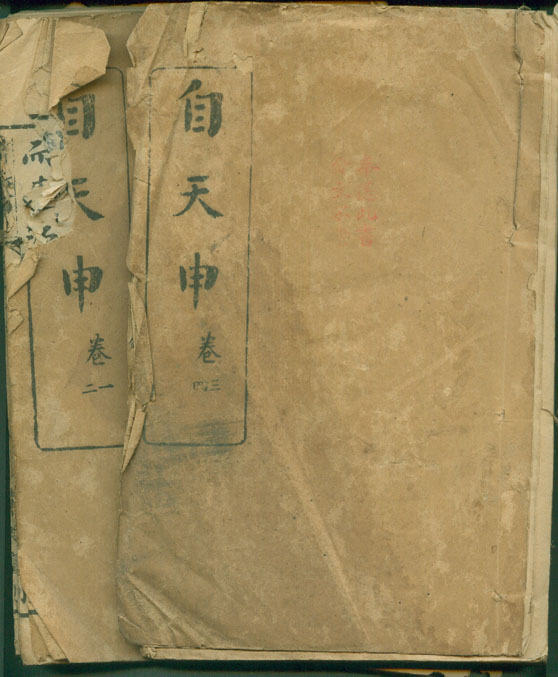 自天申
卷
三四
自天申
卷
一二